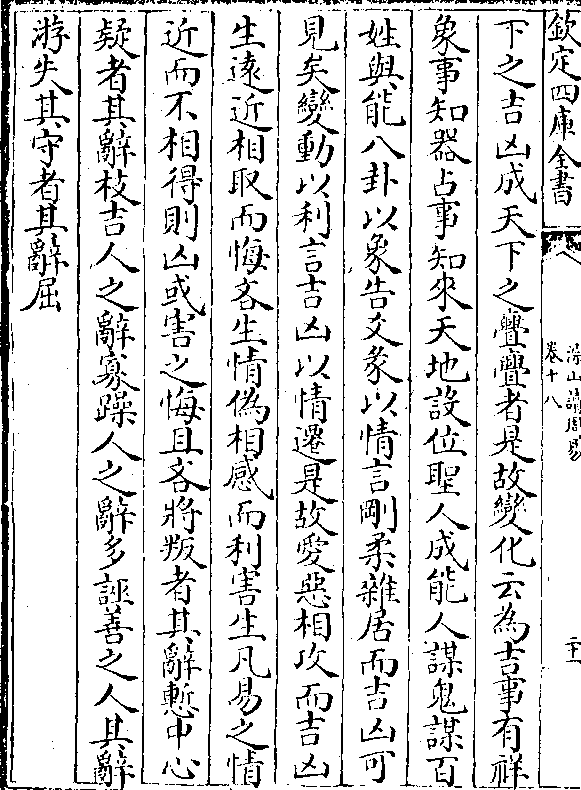 欽定四庫全書
深山讀周易
卷十八
下之吉凶成天下之亹亹者是故變化云為吉事有祥
象事知器占事知來天地設位聖人成能人謀鬼謀百
姓與能八卦以象告爻彖以情言剛柔雜居而吉凶可
見矣變動以利言吉凶以情遷是故愛惡相攻而吉凶
生遠近相取而悔吝生情偽相感而利害生凡易之情
近而不相得則凶或害之悔且吝將叛者其辭慙中心
疑者其辭枝吉人之辭寡躁人之辭多誣善之人其辭
游失其守者其辭屈